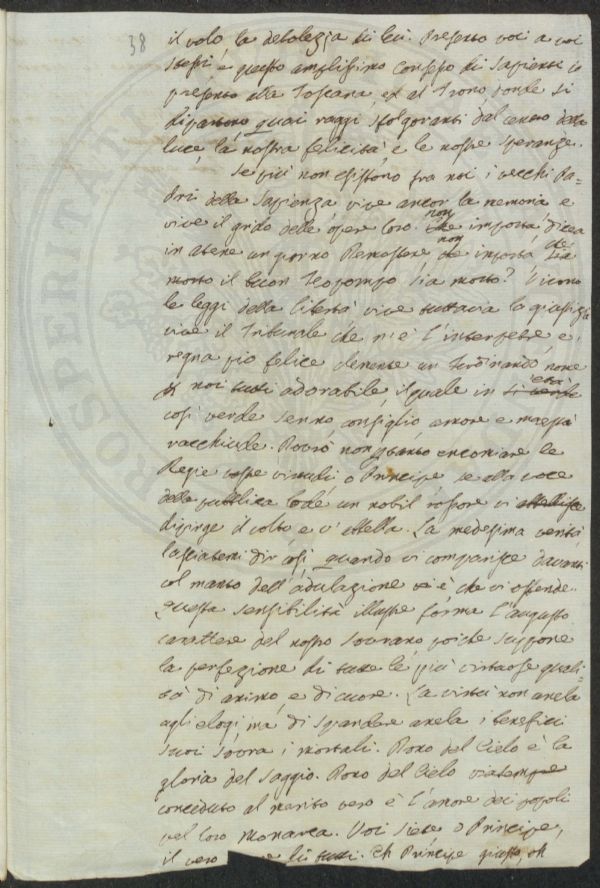 38
il volo, la debolezza di lui. Presento voi a voi
stessi, e questo amplissimo consesso di sapienti io
presento alla Toscana, ed al Trono donde si
dipartono quai raggi sfolgoranti dal centro della
luce la nostra felicità, e le nostre speranze.
Se più non esistono fra noi i vecchi Pa=
dri della Sapienza vive ancor la memoria e
vive il grido delle oper loro. non importa, dicea
in Atene un giorno Demostene non importa che sia
morto il buon Teopompo sia morto? Vivono
le leggi della libertà vive tuttavia la giustizia
vive il Tribunale che n'è l'interprete e
regna pio felice clemente un Ferdinando, nome
a noi tutti adorabile, il quale in età
così verde senno consiglio amore e maestà
racchiude. Dovrò non encomiare le
Regie vostre virtudi o Principe se alla voce
della pubblica lode un nobil rossore vi
dipinge il volto, e v'abbella. La medesima verità
lasciatemi dir così quando vi comparisce davanti
col manto dell'adulazione è che vi offende.
Questa sensibilità illustre forma l'augusto
carattere del nostro Sovrano poiche suppone
la perfezione di tutte le più virtuose quali=
tà di animo, e di cuore. La virtù non anela
agli elogi, ma di spandere anela i benefici
suoi sovra i mortali. Dono del Cielo è la
gloria del saggio. Dono del Cielo
conceduto al merito vero è l'amore dei popoli
pel loro Monarca. Voi siete o Principe,
il vero di tutti. Ah Principe giusto, oh